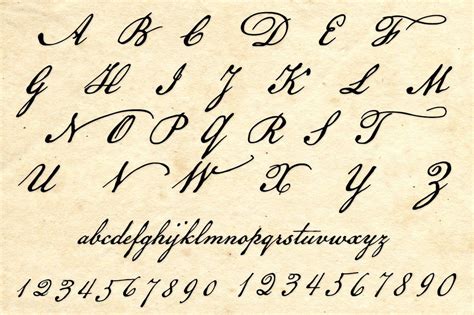 A B C D E F
G H I J K L M
N O P Q R S T
U V W X Y Z
abcdefghijklmnopqrstuvwxyz
1234567890 1234567890